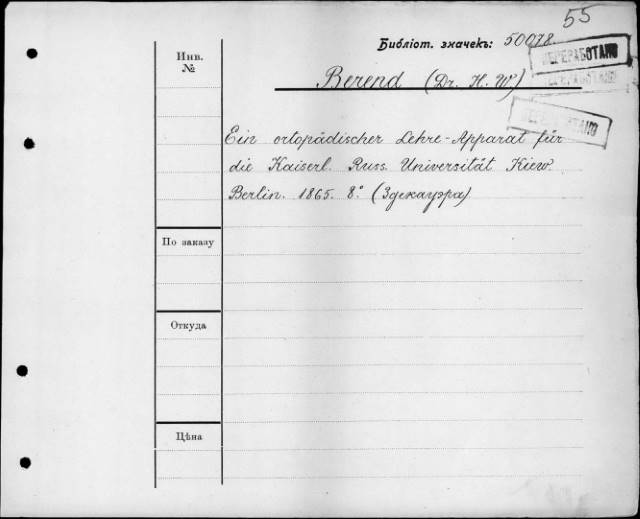 55
Библіот. значекъ: 50078.
ПЕРЕРАБОТАНО
ПЕРЕРАБОТАНО
ПЕРЕРАБОТАНО
Инв.
№
Berend (Dr. H. W)
Ein ortopädischer Lehre-Apparat für
die Kaiserl. Russ. Universität Kiew.
Berlin. 1865. 8.° (Здекауэра)
По заказу
Откуда
Цѣна